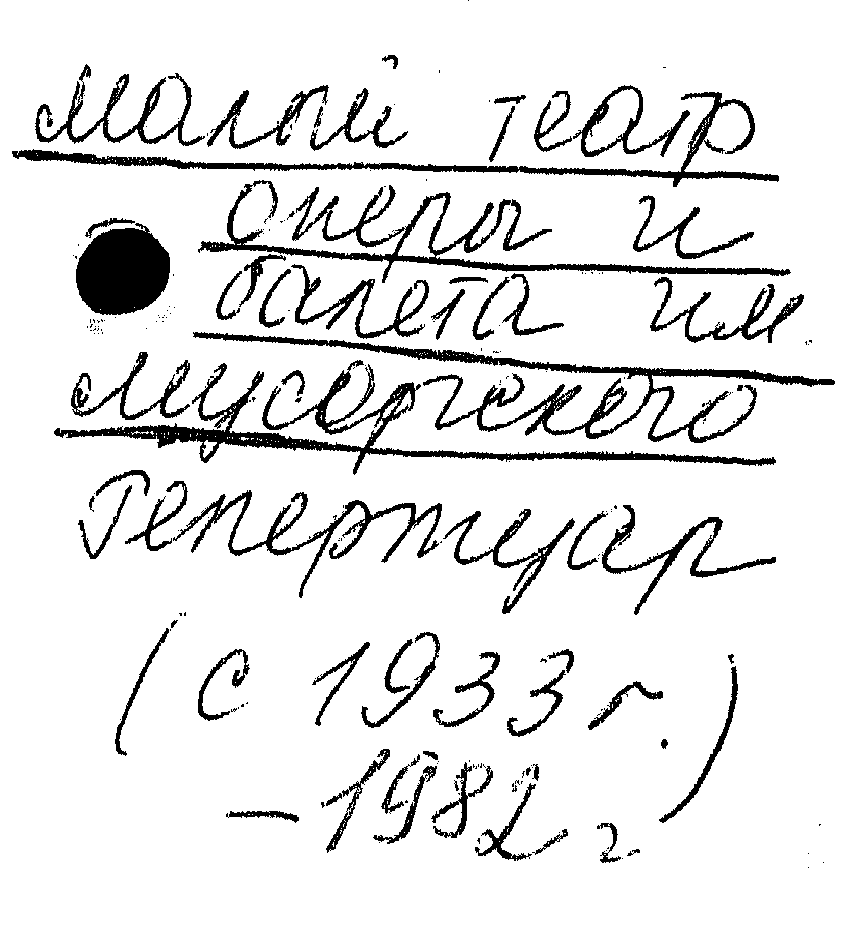 Малый театр
оперы и
балета им.
Мусоргского
Репертуар
(с 1933 г.)
– 1982 г